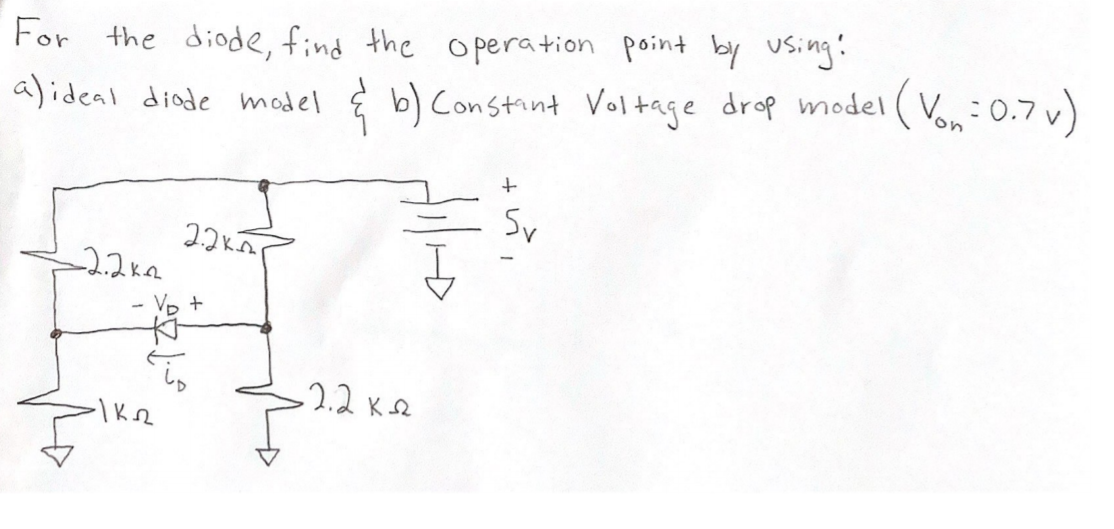 For the diode, find the operation point by using:
a) ideal diode model & b) Constant Voltage drop model (Von = 0.7 v)
+
5v
-
2.2KΩ
2.2KΩ
- VD +
iD
1KΩ
2.2 KΩ